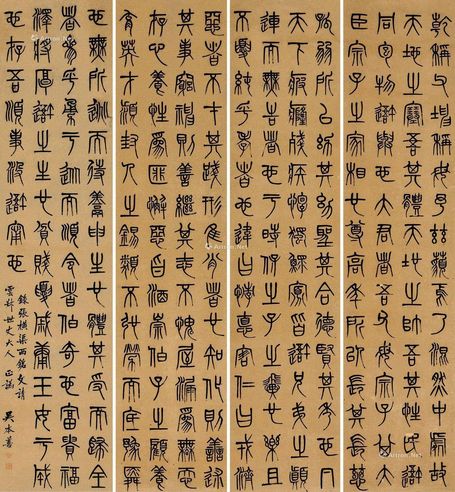 乾稱父坤稱母予茲藐焉乃渾然中處故
天地之塞吾其體天地之帥吾其性民吾
同胞物吾與也大君者吾父母宗子其大
臣宗子之家相也尊高年所以長其長慈
孤弱所以幼其幼聖其合德賢其秀也凡
天下疲癃殘疾惸獨鰥寡皆吾兄弟之顛
連而無告者也于時保之子之翼也樂且
不憂純乎孝者也違曰悖德害仁曰賊濟
惡者不才其踐形惟肖者也知化則善述
其事窮神則善繼其志不愧屋漏為無忝
存心養性為匪懈惡旨酒崇伯子之顧養
育英才潁封人之錫類不弛勞而底豫舜
也無所逃而待烹申生其體其受而歸全
者參乎勇於從而順令者伯奇也富貴福
澤將厚吾之生也貧賤憂戚庸玉女於成
也存吾順事沒吾寧也
錄張橫渠西銘文請
世丈大人正 吳本善